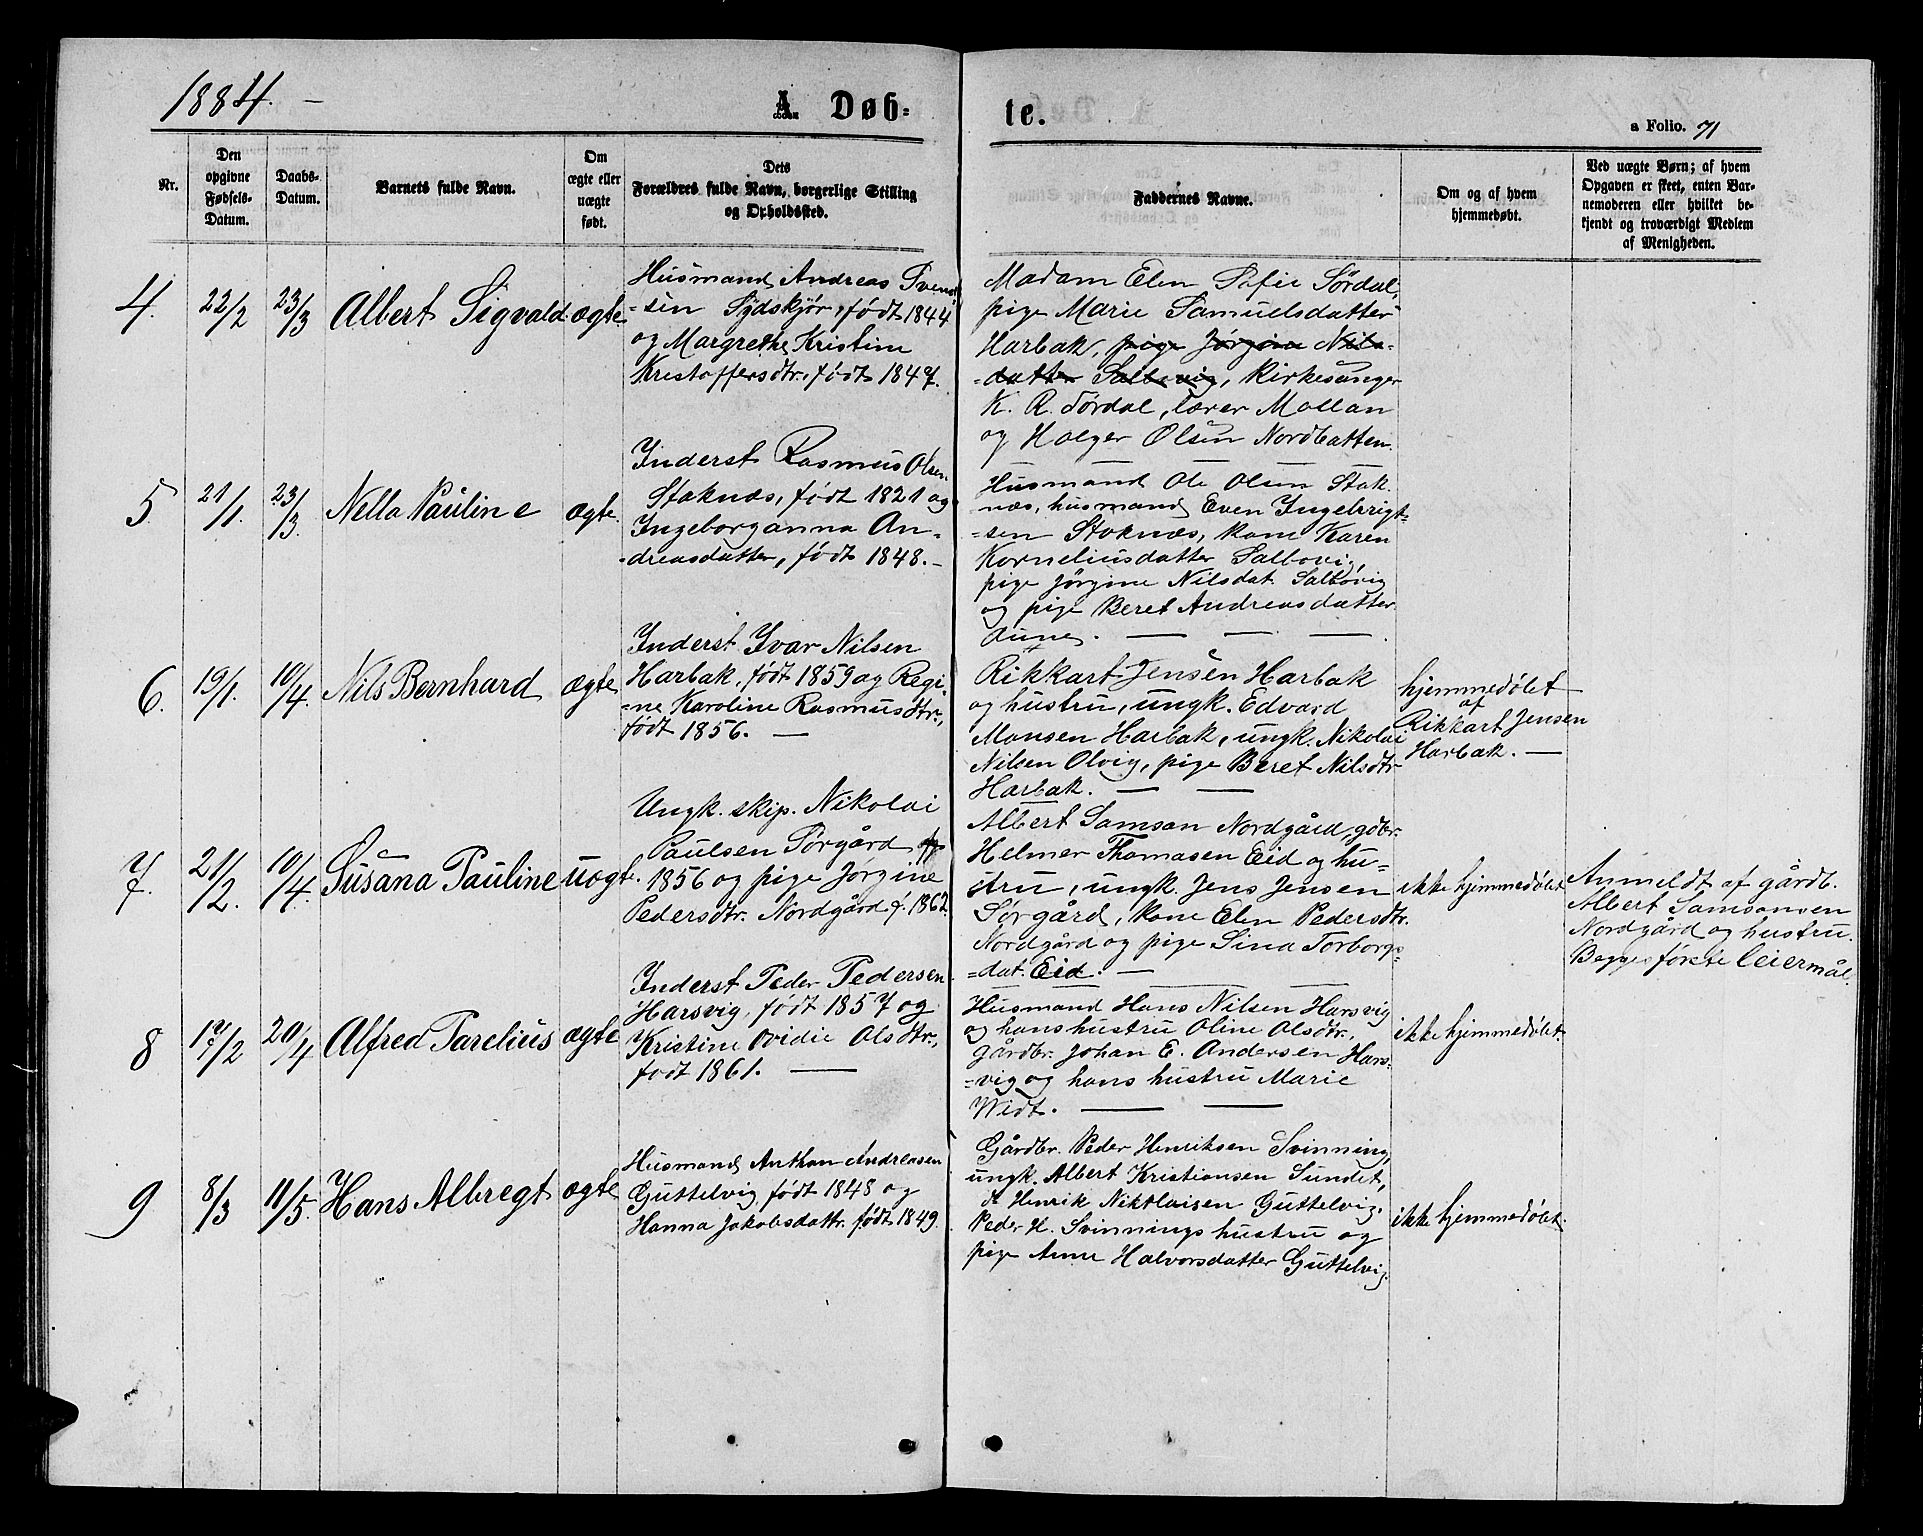 1884. –
A. Døb-
te.
a Folio. 71
Nr.
Den
opgivne
Fødsels-
Datum.
Daabs-
Datum.
Barnets fulde Navn.
Om
ægte eller
uægte
født.
Dets
Forældres fulde Navn, borgerlige Stilling
og Opholdssted.
Faddernes Navne.
Om og af hvem
hjemmedøbt.
Ved uægte Børn; af hvem
Opgaven er skeet, enten Bar-
nemoderen eller hvilket be-
kjendt og troværdigt Medlem
af Menigheden.
4.
22/2
23/3
Albert Sigvald
ægte
Husmand Andreas Svend
=sen Sydskjør, født 1844
og Margrethe Kristine
Kristoffersdtr. født 1847.
Madam Elen Sofie Sørdal,
pige Marie Samuelsdatter
Harbak, pige Jørgine Nils-
=datter Salbovig, Kirkesanger
K. R. Sørdal, lærer Mollan
og Holger Olsen Nordbotten.
5
21/1.
23/3.
Nella Pauline
ægte.
Inderst Rasmus Olsen
Stoknæs, født 1821 og
Ingeborganna An-
-dreasdatter, født 1848. –
Husmand Ole Olsen Stok
næs, husmand Even Ingebrigt=
=sen Stoknæs, kone Karen
Korneliusdatter Salbovig,
pige Jørgine Nilsdat. Salbovig
og pige Beret Andreasdatter
Aune. — — —
6.
19/1.
10/4.
Nils Bernhard
ægte
Inderst Ivar Nilsen
Harbak, født 1859 og Regi-
=ne Karoline Rasmusdtr.,
født 1856. —
Rikkart Jensen Harbak
og hustru, ungk. Edvard
Monsen Harbak, ungk. Nikolai
Nilsen Olvig, pige Beret Nilsdtr
Harbak. — —
hjemmedøbt
af
Rikkart Jensen
Harbak. —
7.
21/2.
10/4.
Susana Pauline
uægte.
Ungk. skip. Nikolai
Paulsen Sørgård
1856 og pige Jørgine
Pedersdtr. Nordgård f. 1862.
Albert Samson Nordgård, gdbr.
Helmer Thomasen Eid og hu-
stru, ungk. Jens Jensen
Sørgård, kone Elen Pedersdtr.
Nordgård og pige Sina Torborgs=
=dat. Eid. —
ikke hjemmedøbt
Anmeldt af gårdb.
Albert Samsonsen
Nordgård og hustru.
Begges første leiermål.
8
17/2
20/4
Alfred Parelius
ægte
Inderst Peder Pedersen
Harsvig, født 1857 og
Kristine Ovidie Olsdtr.,
født 1861. —
Husmand Hans Nilsen Harsvig
og hans hustru Oline Olsdtr.,
gårdbr. Johan E. Andersen Hars-
=vig og hans hustru Marie
Widt. — —
ikke hjemmedøbt.
9
8/3
11/5.
Hans Albregt
ægte
Husmand Anthon Andreasen
Guttelvig født 1848 og
Hanna Jakobsdattr. født 1849.
Gårdbr. Peder Henriksen Svinning,
ungk. Albert Kristiansen Sundet,
dt Henrik Nikolaisen Guttelvig,
Peder H. Svinnings hustru og
pige Anne Halvorsdatter Guttelvig.
ikke hjemmedøbt.